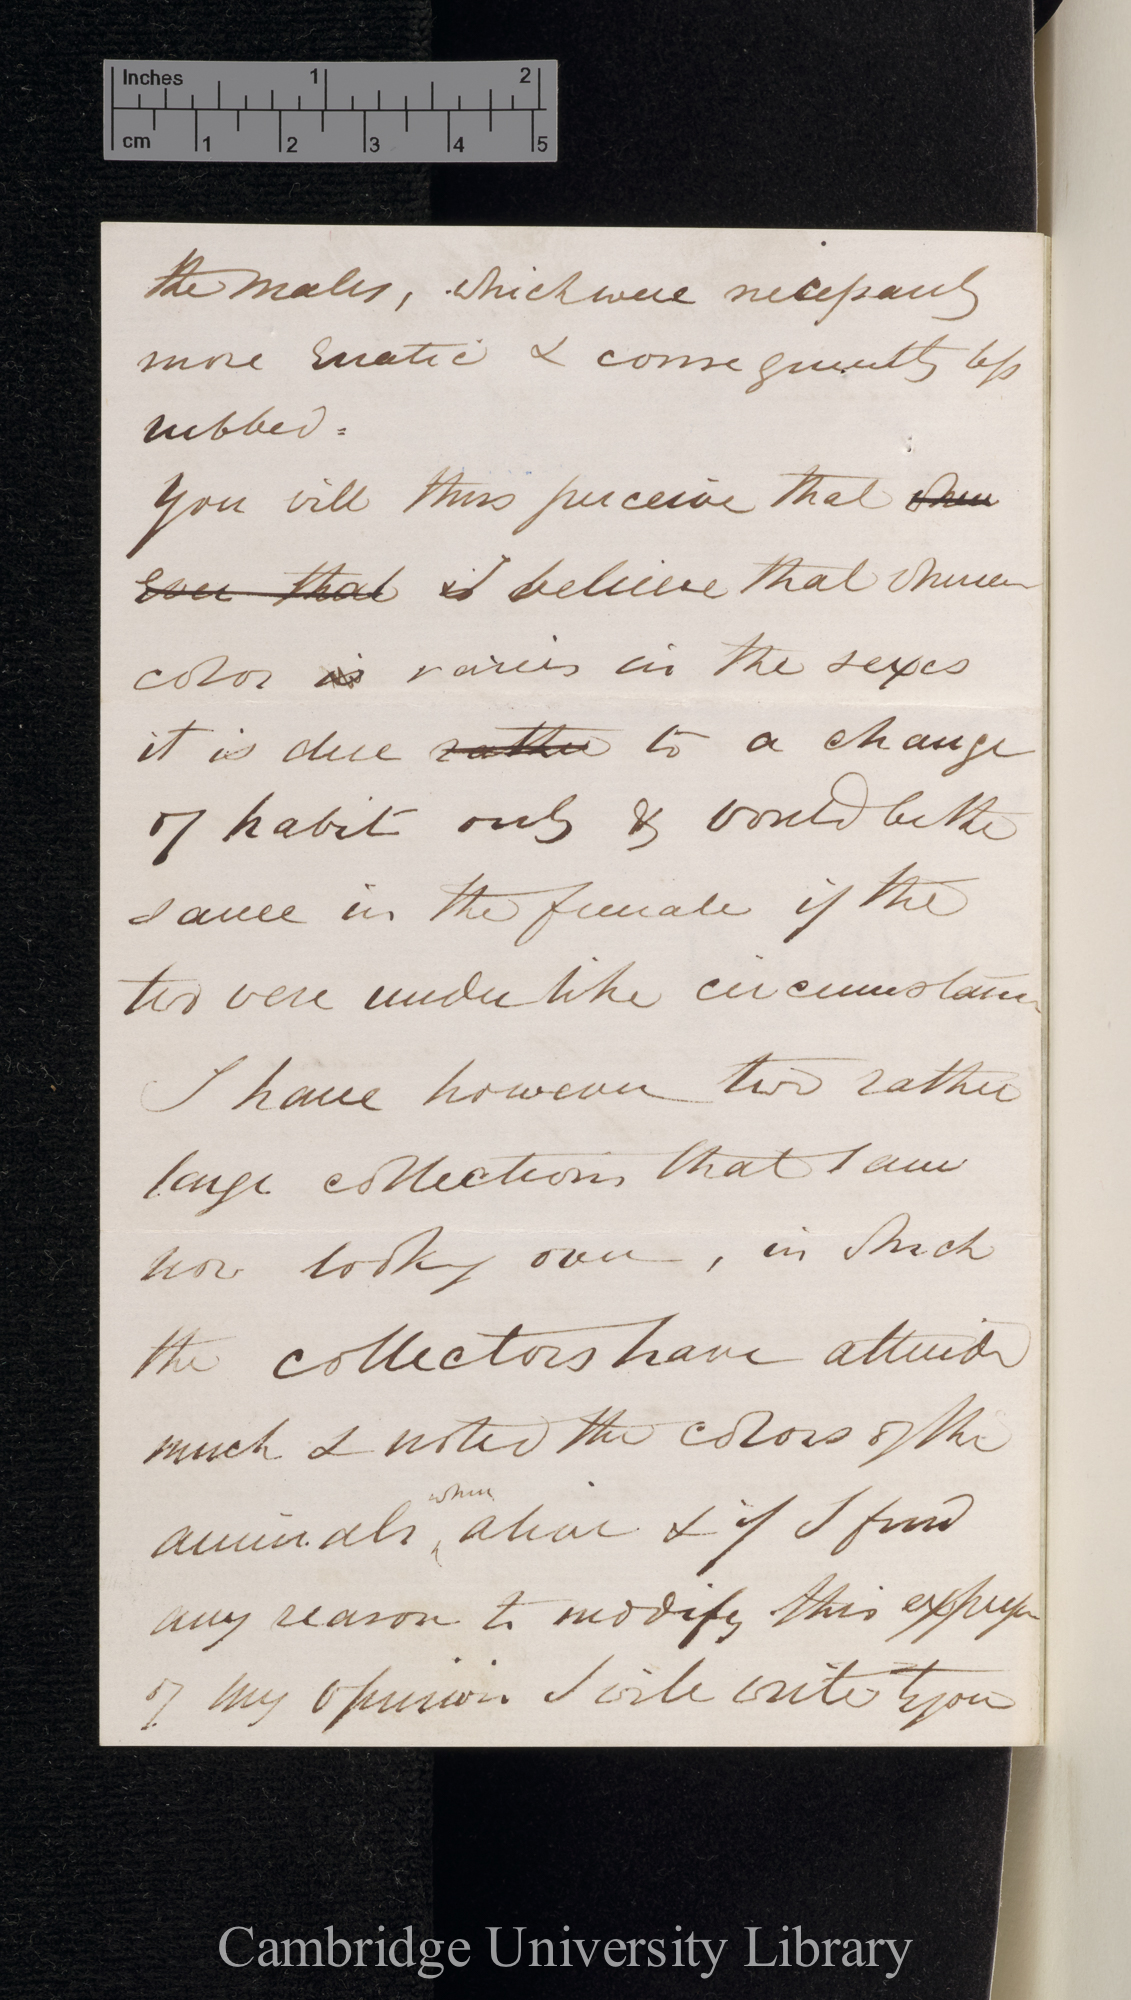 Inches 1 2
cm 1 2 3 4 5
the males, which were necessarily
more erratic & consequently less
rubbed.
You will thus perceive that when
even that I believe that whenever
color is varies in the sexes
it is due rather to a change
of habit only & would be the
same in the female if the
two were under like circumstances
I have however two rather
large collections that I am
now looking over, in which
the collectors have attended
much & noted the colors of the
animals when alive & if I find
any reason to modify this expression
of my opinion I will write to you
Cambridge University Library